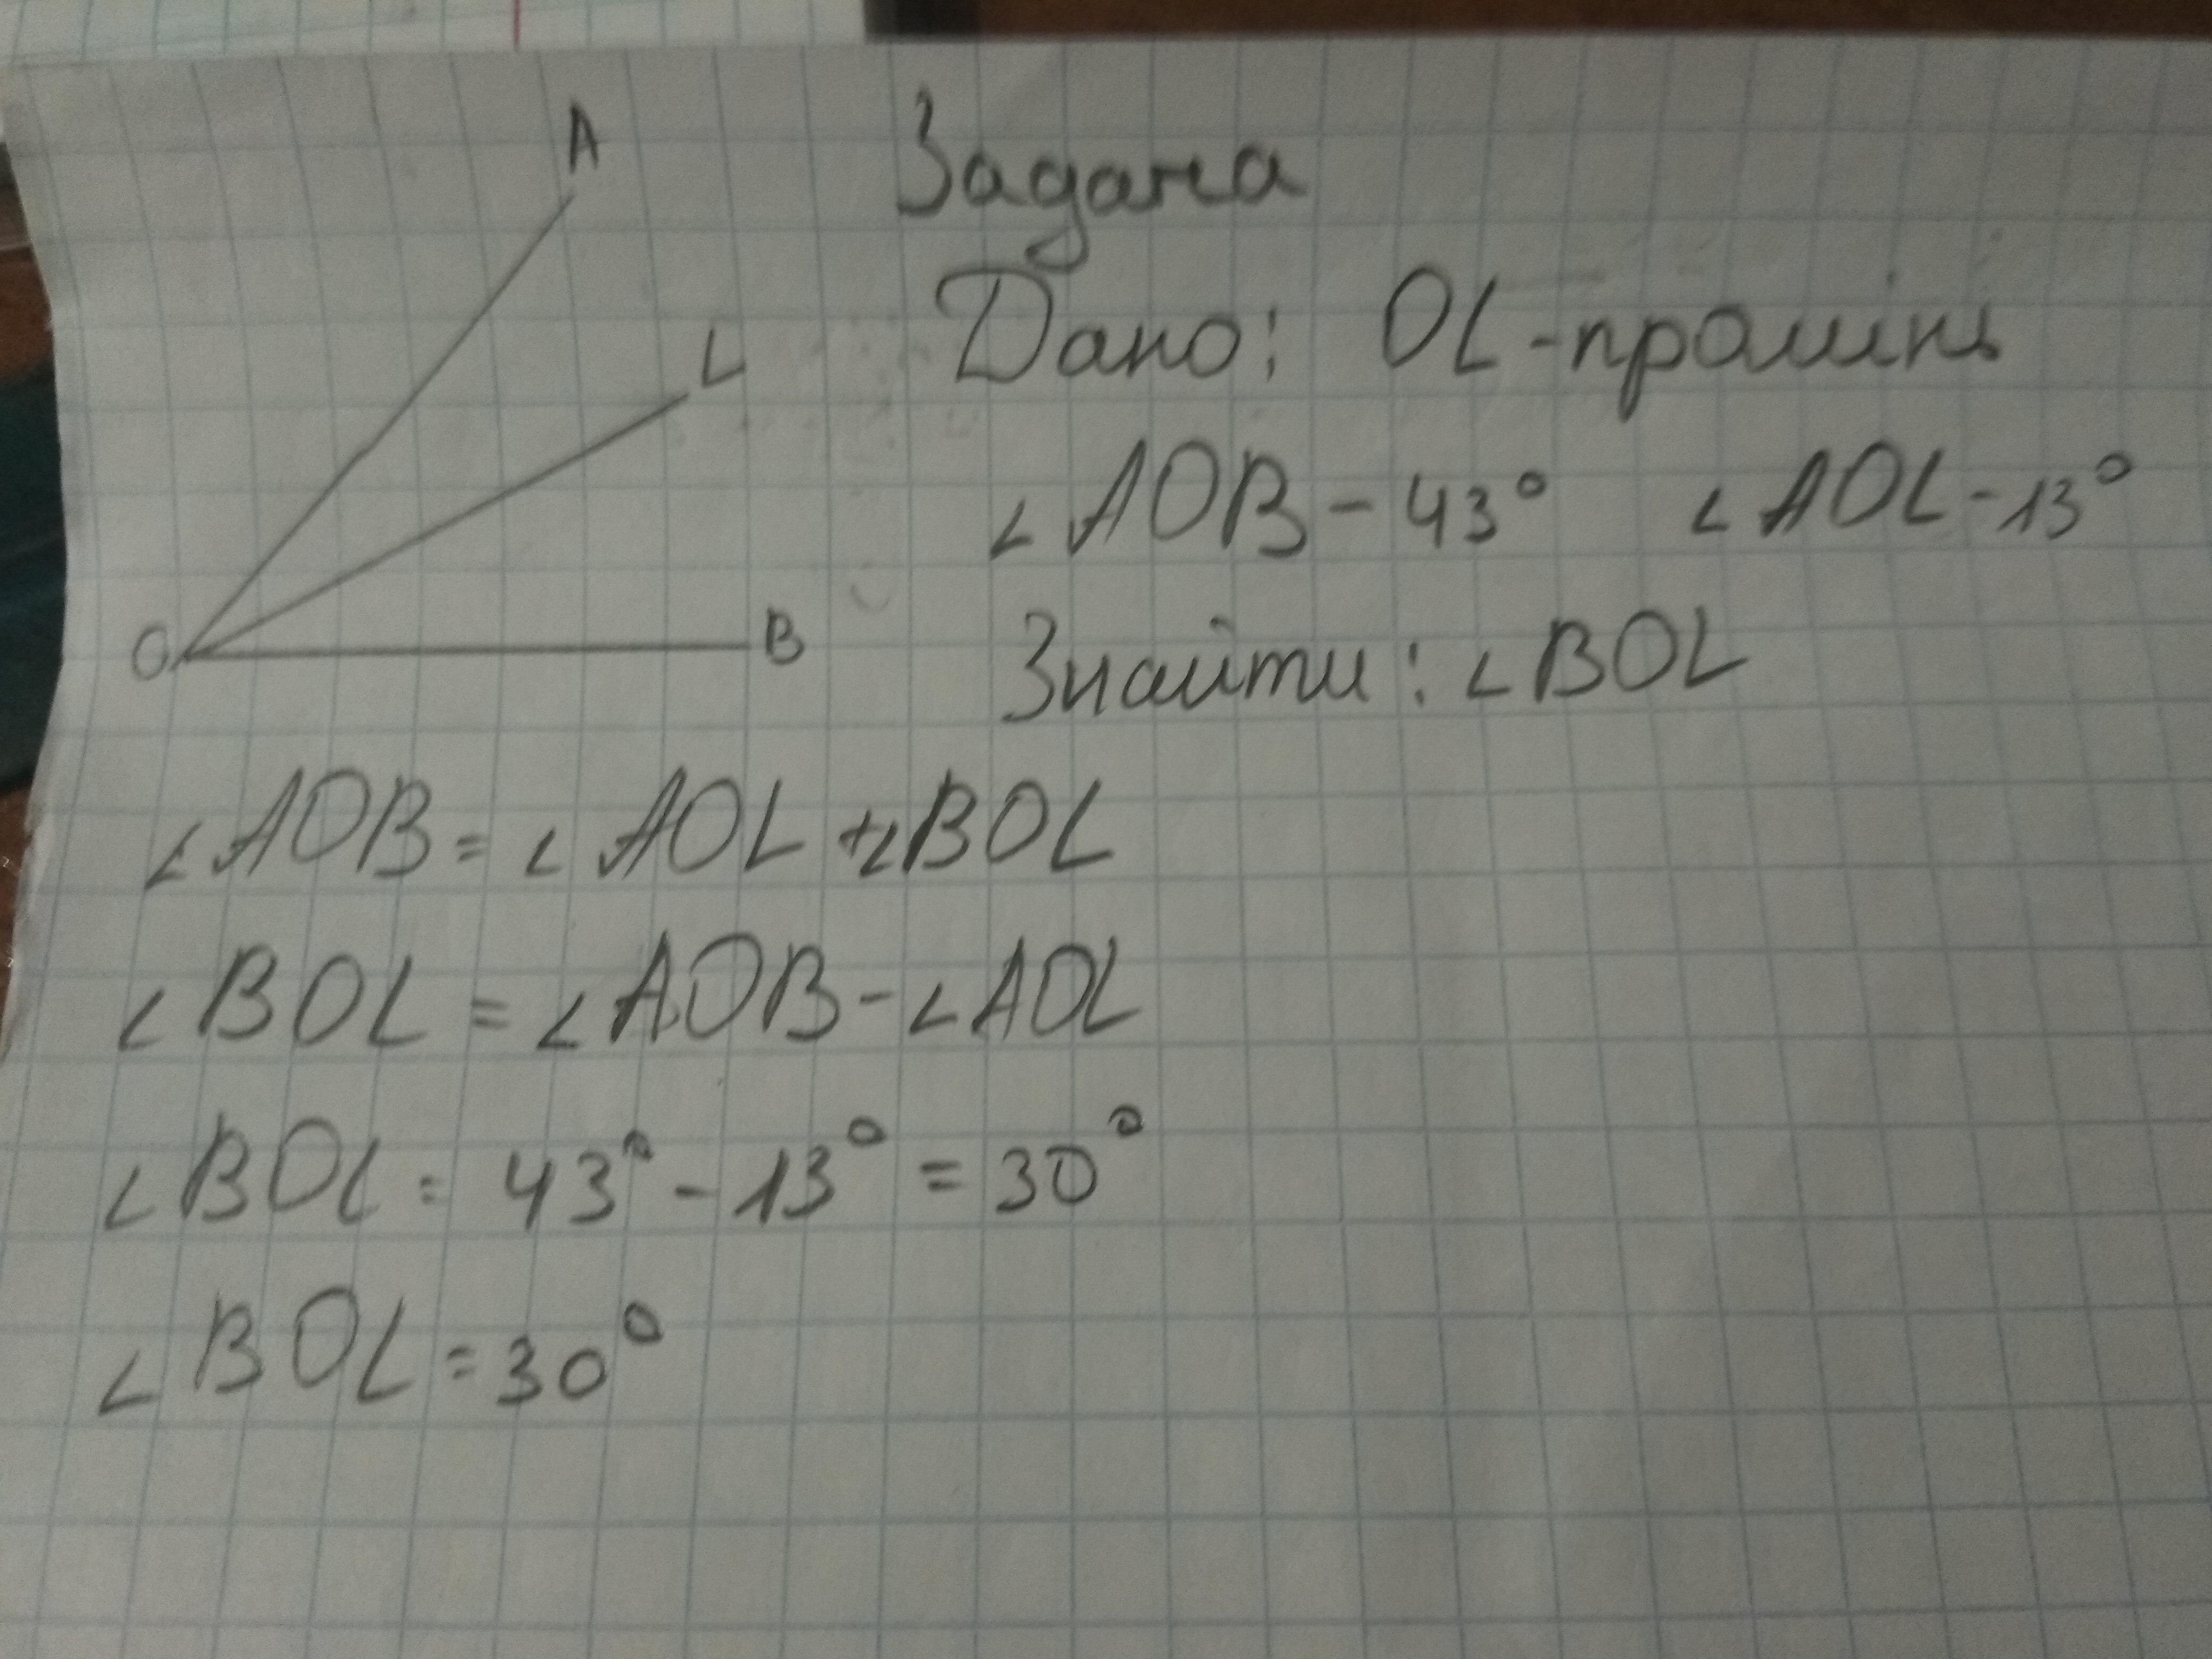 A
L
O
B
Задача
Дано: OL-промінь
∠AOB - 43° ∠AOL - 13°
Знайти: ∠BOL
∠AOB = ∠AOL + ∠BOL
∠BOL = ∠AOB - ∠AOL
∠BOL = 43° - 13° = 30°
∠BOL = 30°